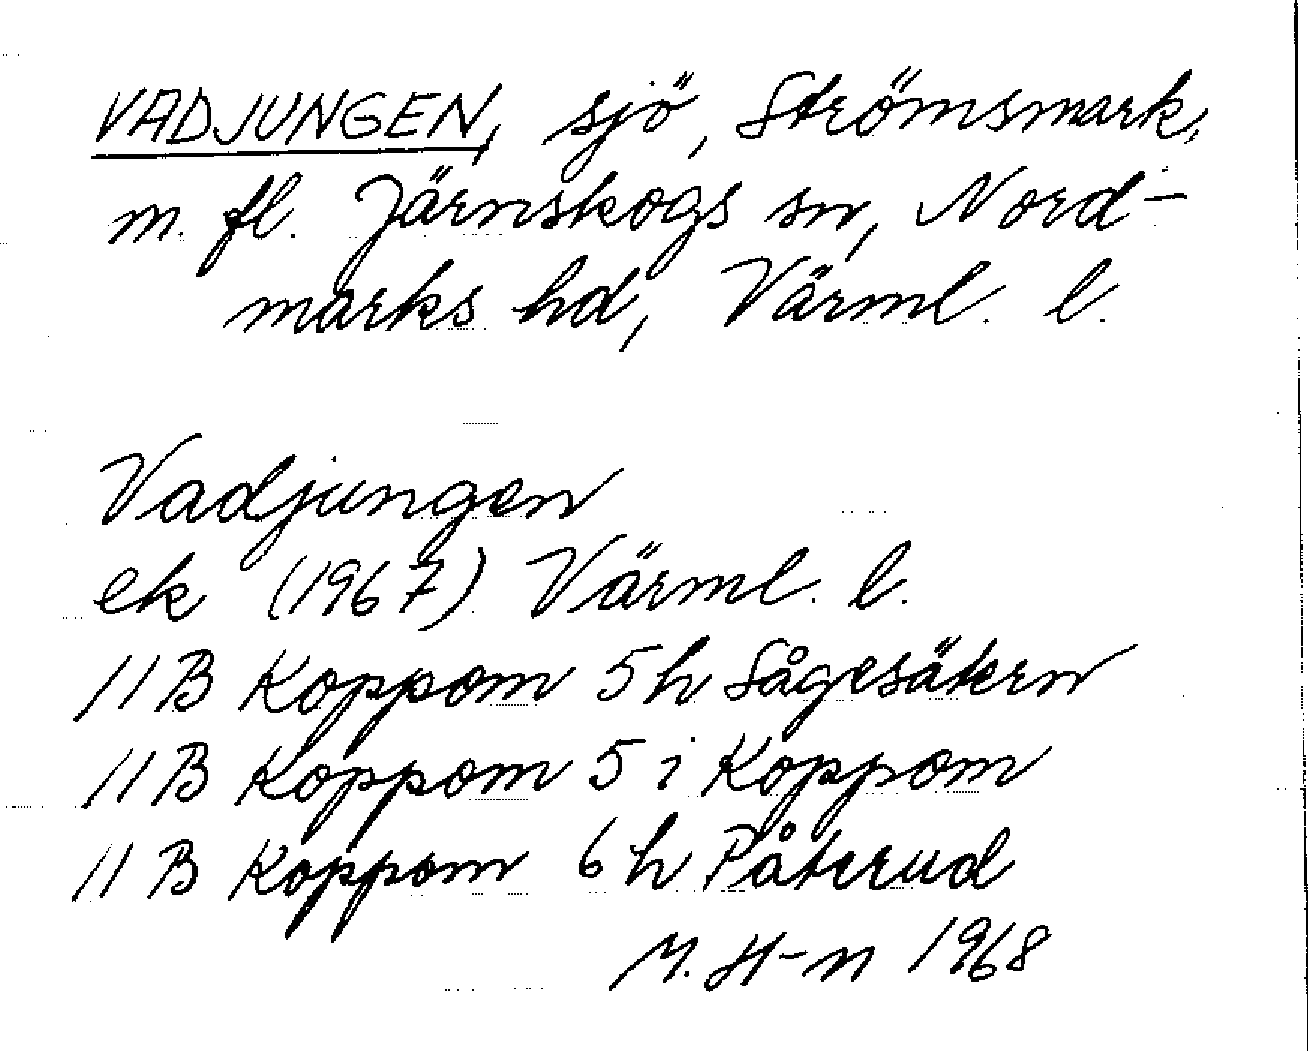 VADJUNGEN, sjö, Strömsmark,
m. fl. Järnskogs sn, Nord-
marks hd, Värml. l.
Vadjungen
ek (1967) Värml. l.
11 B Koppom 5 h Sågesäkern
11 B Koppom 5 i Koppom
11 B Koppom 6 h Påterud
M. H-n 1968